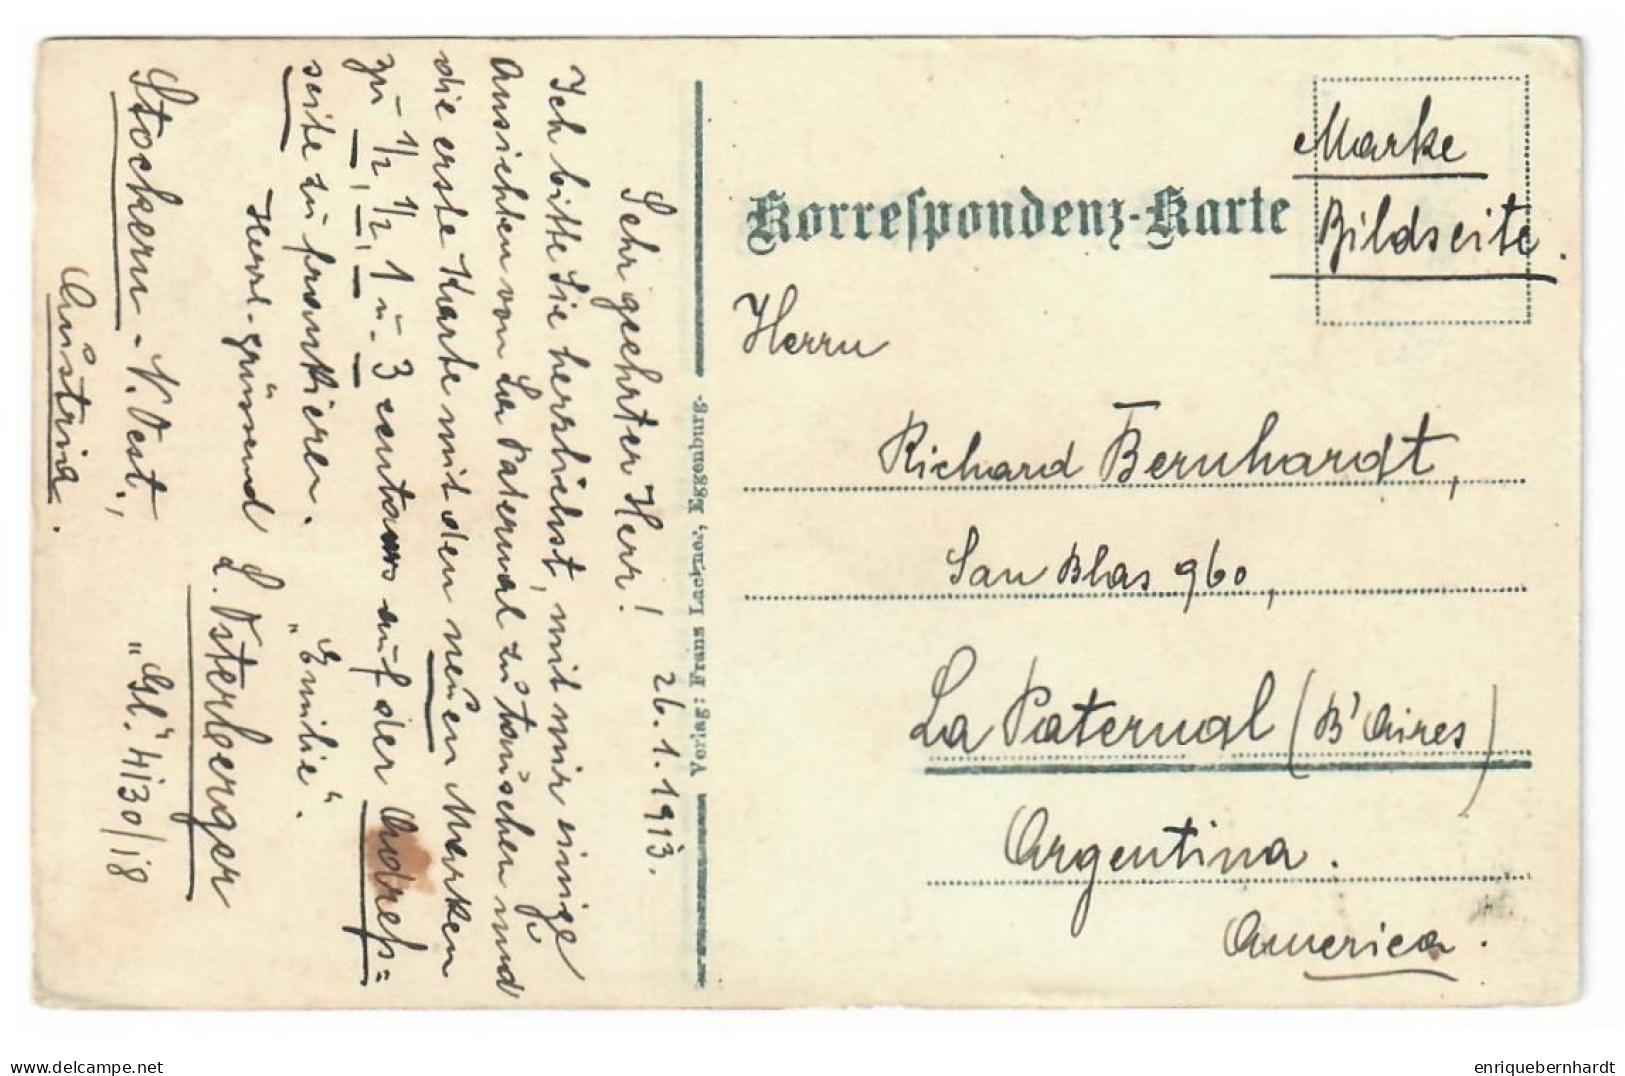 Korrespondenz-Karte
Marke
Bildseite.
Herrn
Richard Bernhardt,
San Blas 960,
La Paternal (B'Aires)
Argentina.
America.
Verlag: Franz Lackner, Eggenburg.
26.1.1913.
Sehr geehrter Herr!
Ich bitte Sie herzlichst, mit mir einige
Ansichten von La Paternal zu tauschen und
die erste Karte mit den neuen Marken
zu 1/2, 1/2, 1 u. 3 centavos auf der Adreß=
seite zu frankieren.
"Emilie".
Herzl. grüssend
L. Osterberger
Stockern - N. Oest.,
"Gl." 4130/18
Austria.
enriquebernhardt